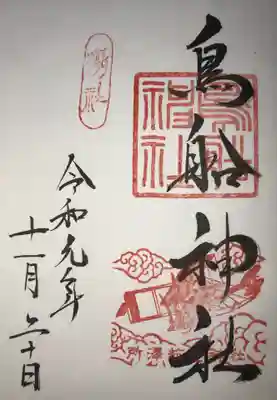 鳥船神社
鳥船
神社
令和元年
十一月三十日